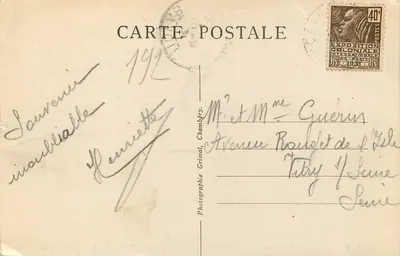 CARTE POSTALE
192
Souvenir
inoubliable
Henriette
Photographie Grimal, Chambéry.
40c
EXPOSITION
COLONIALE
INTERNATIONALE
PARIS 1931
Mr et Mme Guérin
Avenue Rouget de l'Isle
Vitry s/ Seine
Seine